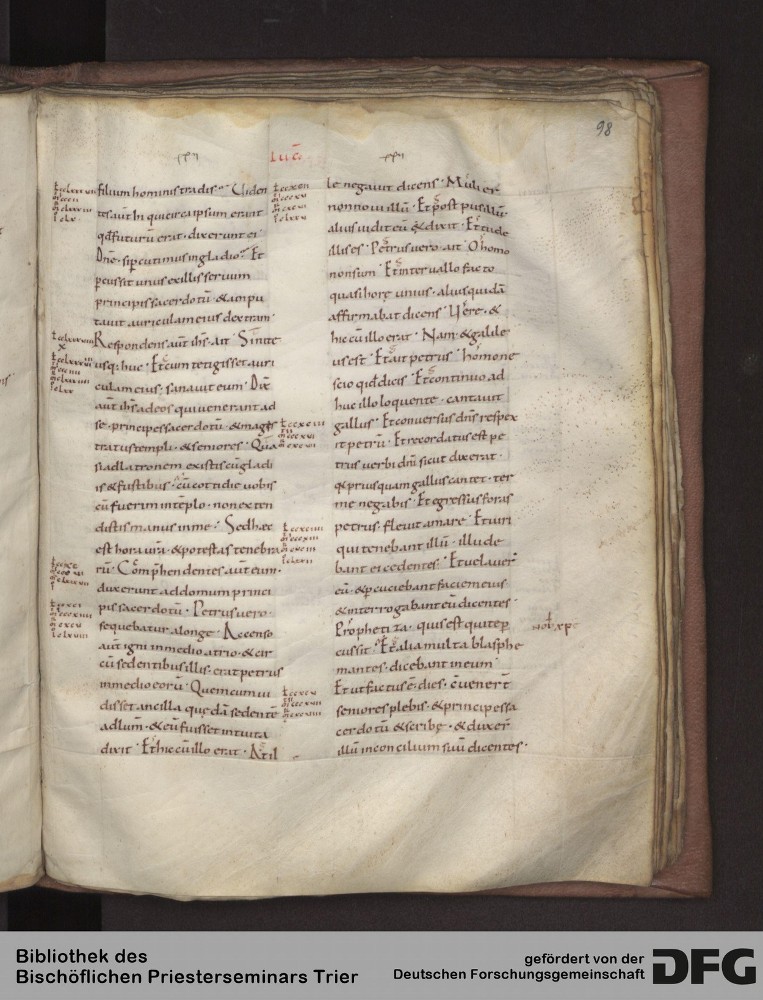 98
Luc̄
filium hominis tradis · Uiden
tes aūt hi qui circa ipsum erant
qđ futurū erat · dixerunt ei ·
Dn̄e · si percutimus in gladio · Et
percussit unus ex illis seruum
principis sacerdotū · & ampu
tauit auriculam eius dextram ·
Respondens aūt ih̄s · ait · Sinite
usq; huc · Et cum tetigisset auri
culam eius · sanauit eum · Dix̄
aūt ih̄s ad eos qui uenerant ad
se · principes sacerdotū · & magis
tratus templi · & seniores · Quasi
ad latronem existis cū gladi
is & fustibus · cū cottidie uobis
cū fuerim in tēplo · non exten
distis manus in me · Sed haec
est hora ur̄a · & potestas tenebra
rū · Comp̄hendentes aūt eum ·
duxerunt ad domum princi
pis sacerdotū · Petrus uero ·
sequebatur a longe · Accenso
aūt igni in medio atrio · & cir
cū sedentibus illis · erat petrus
in medio eorū · Quem cum ui
disset ancilla quedā sedentē
ad lum̄ · & eū fuisset intuita
dixit · Et hic cū illo erat · At il
le negauit dicens · Mulier
non noui illū · Et post pusillū
alius uidit eū & dixit · Et tu de
illis es · Petrus uero · ait · O homo
non sum · Et interuallo facto
quasi horę unius · alius quidā
affirmabat dicens · Uere · &
hic cū illo erat · Nam · & galile
us est · Et ait petrus · homo ne
scio quid dicis · Et continuo ad
huc illo loquente · cantauit
gallus · Et conuersus dn̄s respex
it petrū · Et recordatus est pe
trus uerbi dn̄i sicut dixerat ·
quia priusquam gallus cantet · ter
me negabis · Et egressus foras
petrus · fleuit amare · Et uiri
qui tenebant illū · illude
bant ei cedentes · Et uelauer̄
eū · & percuciebant faciem eius ·
& interrogabant eū dicentes ·
Prophetiza · quis est qui te per
cussit · Et alia multa blasphe
mantes · dicebant in eum ·
Et ut factus ē dies · cōuenerт̄
seniores plebis · & principes sa
cerdotū & scribę · & duxer̄
illū in concilium suū dicentes ·
nob̄ xp̄e
Bibliothek des
Bischöflichen Priesterseminars Trier
gefördert von der
Deutschen Forschungsgemeinschaft
DFG